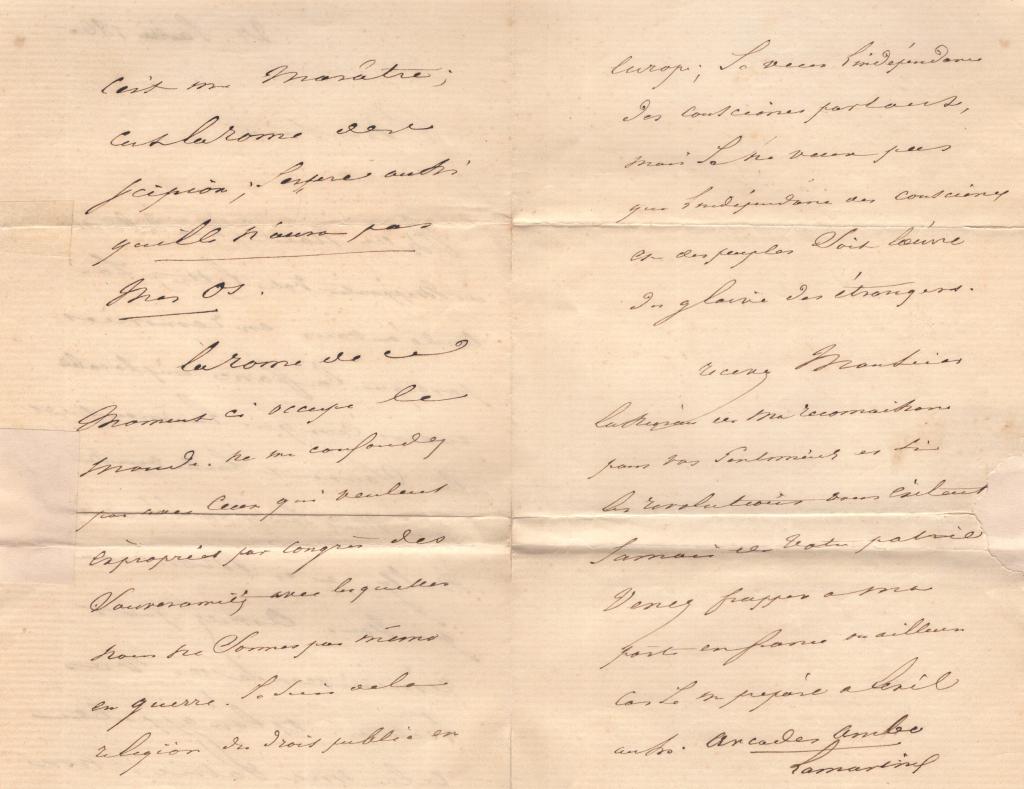 c'est une Marâtre;
c'est la rome des
scipion; J'espère aussi
qu'elle n'aura pas
Mes Os.
la rome de ce
Moment ci occupe le
monde. ne me confondez
pas avec Ceux qui veulent
exproprier par Congrès des
Souverainetés avec lesquelles
nous ne Sommes pas même
en guerre. Je Suis de la
religion du droit public en
Europe; Je veux l'indépendance
des consciences partout,
mais Je ne veux pas
que l'indépendance des consciences
et des peuples Soit l'œuvre
du glaive des étrangers.
recevez Monsieur
de ma reconnaissance
pour vos Sentiments et Si
les révolutions vous exilent
Jamais de Votre patrie
Venez frapper a ma
porte en france ou ailleurs
car Je me prépare a l'exil
aussi. Arcades Ambo
Lamartine